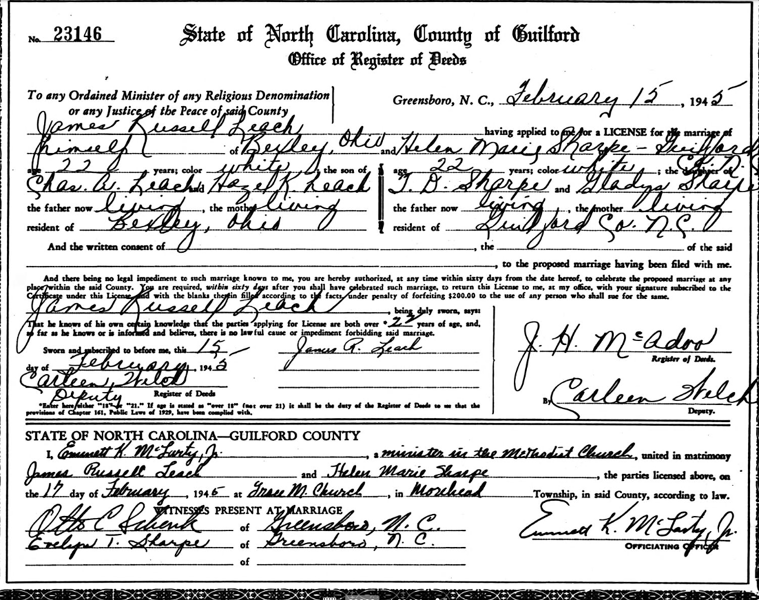 No. 23146
State of North Carolina, County of Guilford
Office of Register of Deeds
To any Ordained Minister of any Religious Denomination
or any Justice of the Peace of said County
Greensboro, N. C., February 15, 1945
James Russell Leach having applied to me for a LICENSE for the marriage of
himself of Bexley, Ohio and Helen Marie Sharpe - Guilford
age 22 years; color white, the son of age 22 years; color white; the daughter of
Chas. A. Leach and Hazel K. Leach T. D. Sharpe and Gladys Sharpe
the father now living, the mother living the father now living, the mother living
resident of Bexley, Ohio resident of Guilford Co. N.C.
And the written consent of , the of the said
, to the proposed marriage having been filed with me.
And there being no legal impediment to such marriage known to me, you are hereby authorized, at any time within sixty days from the date hereof, to celebrate the proposed marriage at any
place within the said County. You are required, within sixty days after you shall have celebrated such marriage, to return this License to me, at my office, with your signature subscribed to the
Certificate under this License, and with the blanks therein filled according to the facts, under penalty of forfeiting $200.00 to the use of any person who shall sue for the same.
James Russell Leach, being duly sworn, says:
That he knows of his own certain knowledge that the parties applying for License are both over *22 years of age, and,
so far as he knows or is informed and believes, there is no lawful cause or impediment forbidding said marriage.
Sworn and subscribed to before me, this 15 James R. Leach
day of February, 1945
Carleen Welch
Deputy Register of Deeds
*Enter here either "18" or "21." If age is stated as "over 18" (not over 21) it shall be the duty of the Register of Deeds to see that the
provisions of Chapter 161, Public Laws of 1929, have been complied with.
J. H. McAdoo
Register of Deeds.
By Carleen Welch
Deputy.
STATE OF NORTH CAROLINA—GUILFORD COUNTY
I, Emmett K. McLarty, Jr., a minister in the Methodist Church, united in matrimony
James Russell Leach and Helen Marie Sharpe, the parties licensed above, on
the 17 day of February, 1945 at Grace M. Church, in Morehead Township, in said County, according to law.
WITNESSES PRESENT AT MARRIAGE
Otto C. Schenk of Greensboro, N. C.
Evelyn T. Sharpe of Greensboro, N. C.
of
Emmett K. McLarty, Jr.
OFFICIATING OFFICER